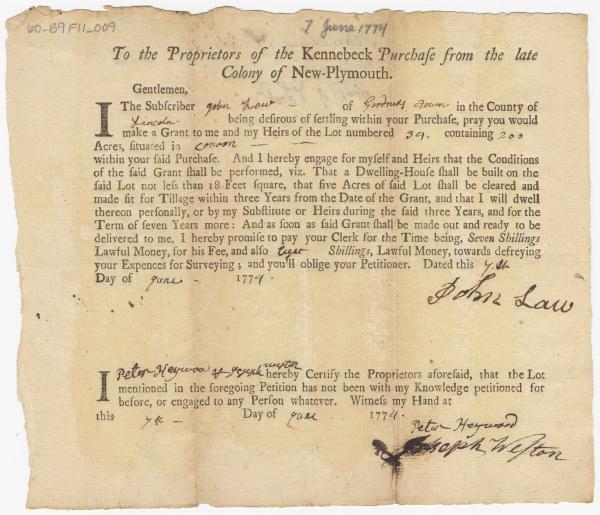 60-B9F11_009
7 June 1774
To the Proprietors of the Kennebeck Purchaſe from the late
Colony of New-Plymouth.
Gentlemen,
I The Subſcriber John Law - of Town in the County of
Lincoln being deſirous of ſettling within your Purchaſe, pray you would
make a Grant to me and my Heirs of the Lot numbered 34. containing 200
Acres, ſituated in
within your ſaid Purchaſe. And I hereby engage for myſelf and Heirs that the Conditions
of the ſaid Grant ſhall be performed, viz. That a Dwelling-Houſe ſhall be built on the
ſaid Lot not leſs than 18 Feet ſquare, that five Acres of ſaid Lot ſhall be cleared and
made fit for Tillage within three Years from the Date of the Grant, and that I will dwell
thereon perſonally, or by my Subſtitute or Heirs during the ſaid three Years, and for the
Term of ſeven Years more: And as ſoon as ſaid Grant ſhall be made out and ready to
be delivered to me, I hereby promiſe to pay your Clerk for the Time being, Seven Shillings
Lawful Money, for his Fee, and alſo Eight Shillings, Lawful Money, towards defreying
your Expences for Surveying; and you'll oblige your Petitioner. Dated this 7th
Day of June - 1774.
John Law
I Peter Heywood & Joseph Weston hereby Certify the Proprietors aforeſaid, that the Lot
mentioned in the foregoing Petition has not been with my Knowledge petitioned for
before, or engaged to any Perſon whatever. Witneſs my Hand at
this 7th - Day of June - 1774.
Peter Heywood
Joseph Weſton